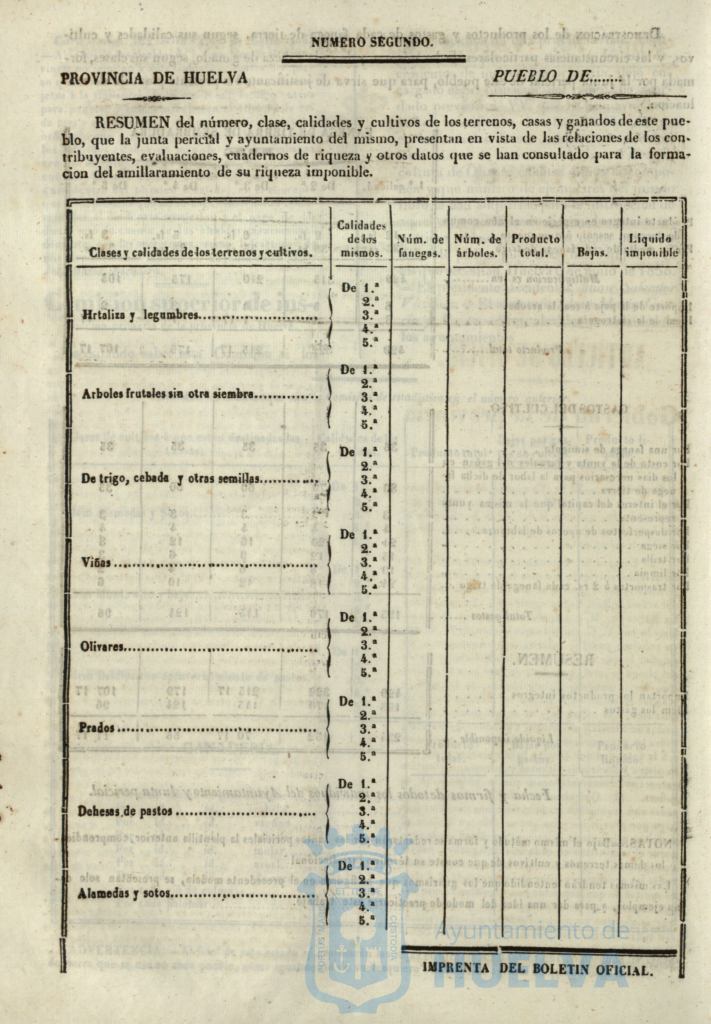 NUMERO SEGUNDO.
PROVINCIA DE HUELVA
PUEBLO DE........
RESUMEN del número, clase, calidades y cultivos de los terrenos, casas y ganados de este pue-
blo, que la junta pericial y ayuntamiento del mismo, presentan en vista de las relaciones de los con-
tribuyentes, evaluaciones, cuadernos de riqueza y otros datos que se han consultado para la forma-
cion del amillaramiento de su riqueza imponible.
Clases y calidades de los terrenos y cultivos.
Calidades de los mismos.
Núm. de fanegas.
Núm. de árboles.
Producto total.
Bajas.
Líquido imponible
Hrtaliza y legumbres
De 1.ª
2.ª
3.ª
4.ª
5.ª
Arboles frutales sin otra siembra
De 1.ª
2.ª
3.ª
4.ª
5.ª
De trigo, cebada y otras semillas
De 1.ª
2.ª
3.ª
4.ª
5.ª
Viñas
De 1.ª
2.ª
3.ª
4.ª
5.ª
Olivares
De 1.ª
2.ª
3.ª
4.ª
5.ª
Prados
De 1.ª
2.ª
3.ª
4.ª
5.ª
Dehesas de pastos
De 1.ª
2.ª
3.ª
4.ª
5.ª
Alamedas y sotos
De 1.ª
2.ª
3.ª
4.ª
5.ª
Ayuntamiento de
HUELVA
IMPRENTA DEL BOLETIN OFICIAL.